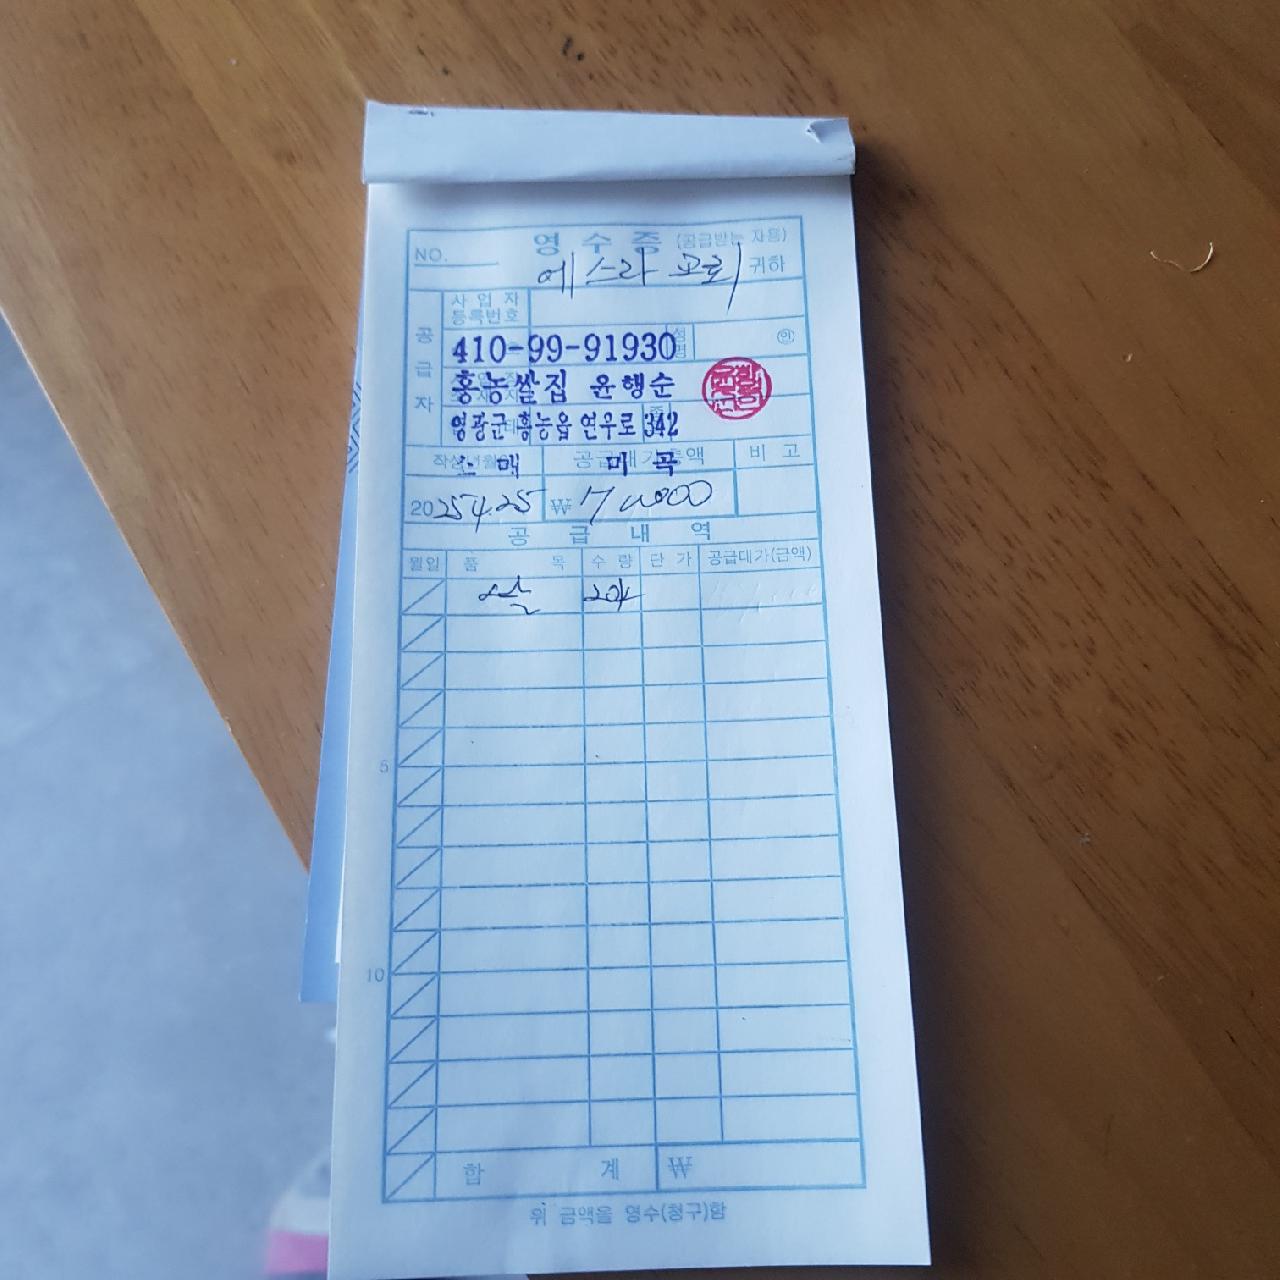 NO. 영 수 증 (공급받는 자용)
에스라 교회 귀하
공급자
사업자
등록번호
410-99-91930 성명 ㊞
홍농쌀집 윤행순
영광군 홍농읍 연우로 342
소 매 미 곡
작성년월일 공급대가총액 비 고
2025.4.25 ₩
공 급 내 역
월일 품 목 수 량 단 가 공급대가(금액)
쌀
5
10
합 계 ₩
위 금액을 영수(청구)함